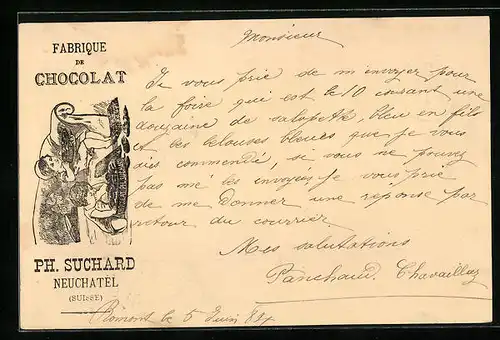 FABRIQUE
DE
CHOCOLAT
PH. SUCHARD
NEUCHATEL
(SUISSE)
Monsieur
Je vous prie de m'envoyer pour
la foire qui est le 10 courant une
douzaine de salopette, bleu en fils
et les belouses bleues que je vous
ais commendé, si vous ne pouvez
pas me les envoyes je vous prie
de me donner une réponse par
retour du courrier.
Mes salutations
Panchaud. Chavaillaz
Romont le 5 Juin 87